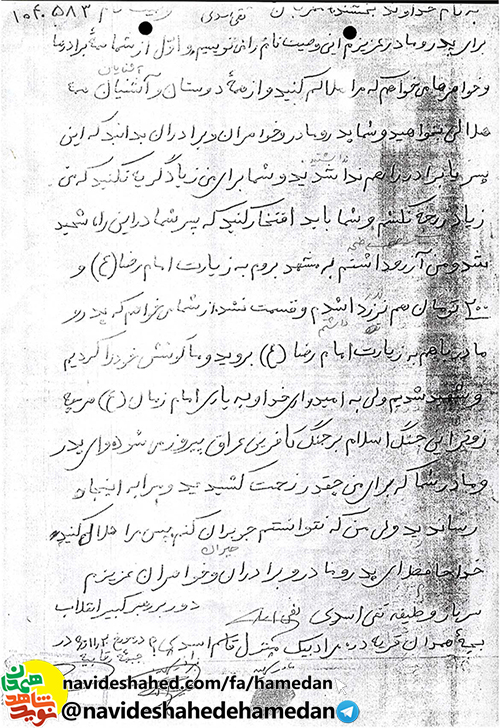 به نام خداوند بخشنده مهربان تقی اسدی وصیت نام 104.583
برای پدر و مادر عزیزم این وصیت نام را می نویسم و اول از شما همهٔ برادرها
و خواهرها می خواهم که مرا حلال کنید و از همهٔ دوستان و آشنایان
حلالی بخواهید و شما پدر و مادر و خواهران و برادران بدانید که این
پسر یا برادر را هم نداشتید و شما برای من زیاد گریه نکنید که من
زیاد رنجه نکشم و شما باید افتخار کنید که پسر شما در این راه شهید
شد و من آرزو داشتم به مشهد بروم به زیارت امام رضا (ع) و
200 تومان هم نزر داشتم و قسمت نشد از شما می خواهم که پدر و
مادر باهم به زیارت امام رضا (ع) بروید و ما کوشش خود را کردیم
و شهید شدیم ولی به امیدوای خدا و به یاری امام زمان (ع) هر چه
زوتر این جنگ اسلام بر جنگ کافرین عراق پیروز می شود ای پدر
و مادر شما که برای من چقدر زحمت کشیدید و مرا به اینجا
رساندید ولی من که نتوانستم جبران کنم پس مرا حلال کنید
جبران
خدا حافظ ای پدر و مادر و برادران و خواهران عزیزم
سرباز وظیفه تقی اسدی تقی اسدی درود بر رهبر کبیر انقلاب
بچهٔ همدان قریه دره مرادبیک منزل قاسم اسدی
navideshahed.com/fa/hamedan
@navideshahedehamedan
نوید شاهد همدان